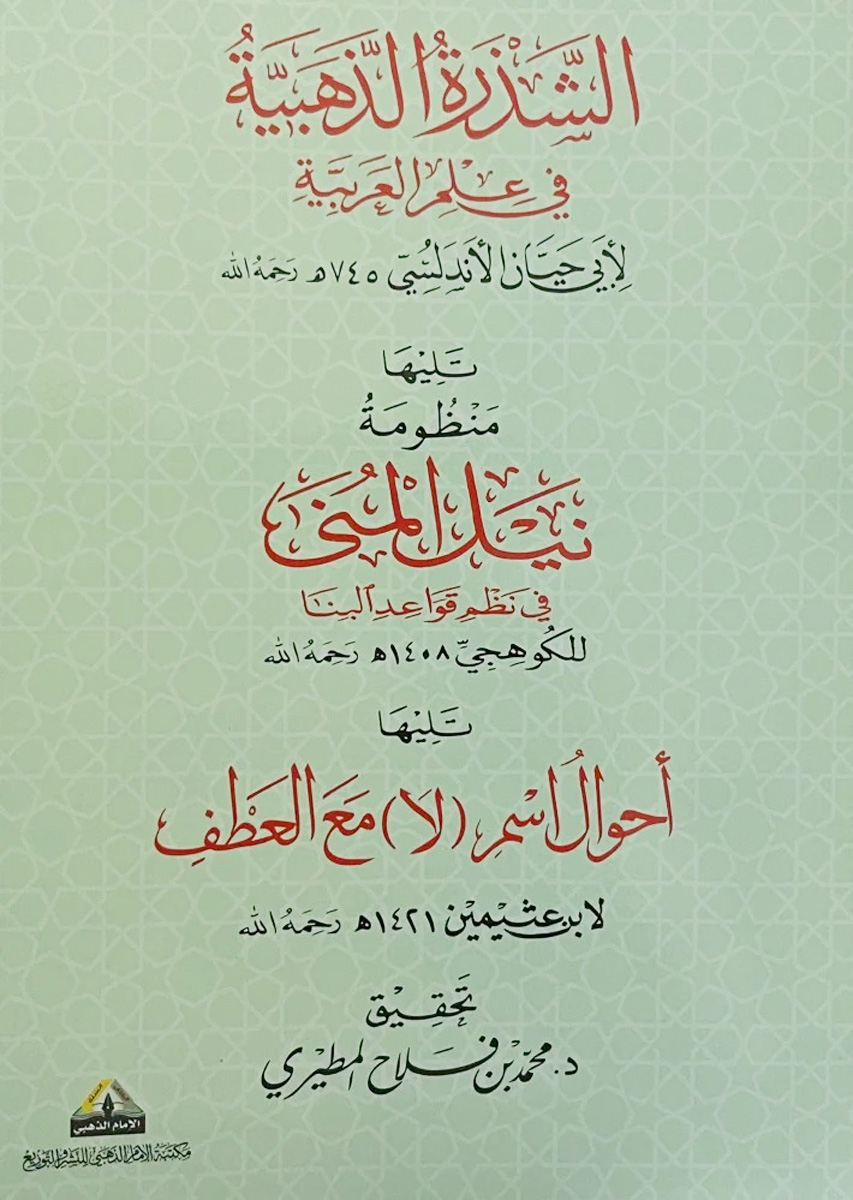 الشَّذْرَةُ الذَّهَبِيَّةُ
فِي عِلْمِ العَرَبِيَّةِ
لِأَبِي حَيَّانَ الأَنْدَلُسِيِّ ٧٤٥هـ رَحِمَهُ الله
تَلِيْهَا
مَنْظُومَةُ
نَيْلِ الْمُنَى
فِي نَظْمِ قَوَاعِدِ البِنَا
للكُوهِجيِّ ١٤٠٨هـ رَحِمَهُ الله
تَلِيْهَا
أحوالُ اسْمِ (لَا) مَعَ العَطْفِ
لابن عثيمين ١٤٢١هـ رَحِمَهُ الله
تَحْقِيْق
د. محمّد بْن فلاح المطيري
الإمام الذهبي
مكتبة الإمام الذهبي للنشر والتوزيع